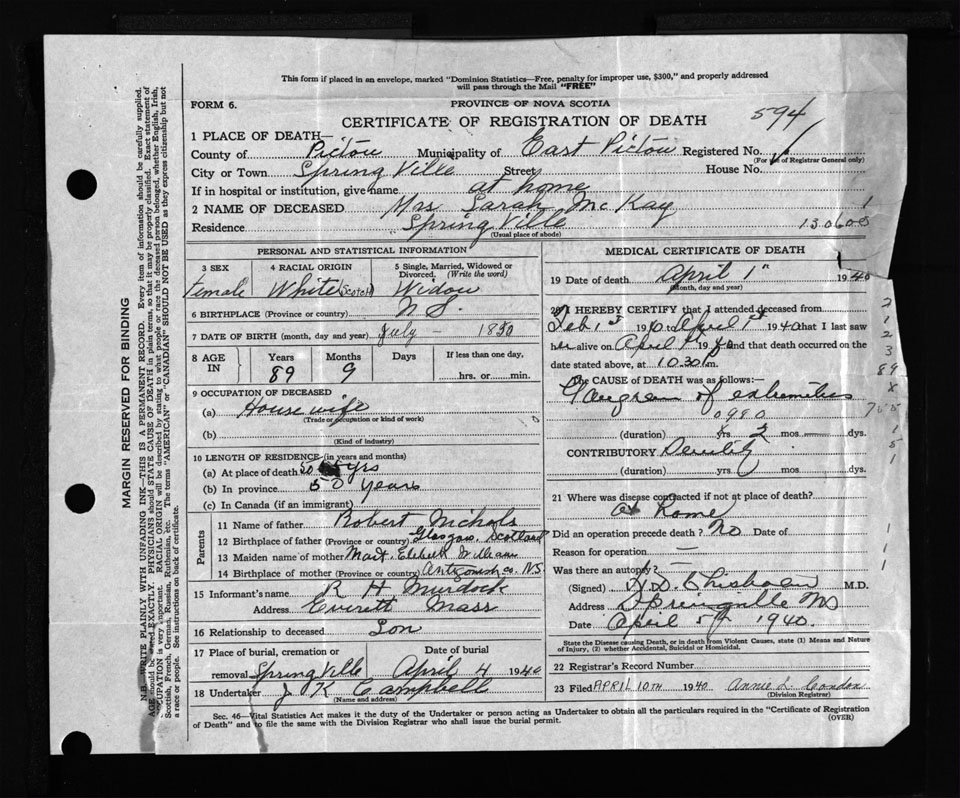 This form if placed in an envelope, marked "Dominion Statistics—Free, penalty for improper use, $300," and properly addressed
will pass through the Mail "FREE"
FORM 6.
PROVINCE OF NOVA SCOTIA
594
CERTIFICATE OF REGISTRATION OF DEATH
1 PLACE OF DEATH—
County of Pictou Municipality of East Pictou Registered No.
(For use of Registrar General only)
City or Town Spring Ville Street House No.
If in hospital or institution, give name at home
2 NAME OF DECEASED Mrs Sarah McKay 1
Residence Spring Ville 130608
(Usual place of abode)
PERSONAL AND STATISTICAL INFORMATION
3 SEX 4 RACIAL ORIGIN 5 Single, Married, Widowed or Divorced. (Write the word)
Female White (Scotch) Widow
6 BIRTHPLACE (Province or country) N S.
7 DATE OF BIRTH (month, day and year) July – 1850
8 AGE IN Years Months Days If less than one day,
89 9 hrs. or min.
9 OCCUPATION OF DECEASED
(a) House wife
(Trade or occupation or kind of work)
(b)
(Kind of industry)
10 LENGTH OF RESIDENCE (in years and months)
(a) At place of death 50 yrs
(b) In province 50 years
(c) In Canada (if an immigrant)
Parents
11 Name of father Robert Nichols
12 Birthplace of father (Province or country) Glasgow, Scotland
13 Maiden name of mother
14 Birthplace of mother (Province or country) Antigonish co. N.S
15 Informant's name R H Murdock
Address Everett Mass
16 Relationship to deceased Son
17 Place of burial, cremation or removal Spring Ville Date of burial April 4 1940
18 Undertaker J K Campbell
(Name and address)
MEDICAL CERTIFICATE OF DEATH
19 Date of death April 1" 1940
(Month, day and year)
20 I HEREBY CERTIFY that I attended deceased from
Feb 1 st April 1st 1940 that I last saw
her alive on April 1st 1940 and that death occurred on the
date stated above, at 10.30 P.m.
The CAUSE OF DEATH was as follows:—
Gangrean of extremities
0980
(duration) yrs 2 mos — dys.
CONTRIBUTORY Senility
(duration) yrs mos dys.
21 Where was disease contracted if not at place of death?
at home
Did an operation precede death? No Date of
Reason for operation —
Was there an autopsy? —
(Signed) Chisholm M.D.
Address Springville NS
Date April 5th 1940.
State the Disease causing Death, or in death from Violent Causes, state (1) Means and Nature
of Injury, (2) whether Accidental, Suicidal or Homicidal.
22 Registrar's Record Number
23 Filed APRIL 10TH 1940 Annie L. Condon
(Division Registrar)
Sec. 46—Vital Statistics Act makes it the duty of the Undertaker or person acting as Undertaker to obtain all the particulars required in the "Certificate of Registration
of Death" and to file the same with the Division Registrar who shall issue the burial permit.
(OVER)
MARGIN RESERVED FOR BINDING
N.B. WRITE PLAINLY WITH UNFADING INK—THIS IS A PERMANENT RECORD. Every item of information should be carefully supplied.
AGE should be stated EXACTLY. PHYSICIANS should STATE CAUSE OF DEATH in plain terms, so that it may be properly classified. Exact statement of
OCCUPATION is very important. RACIAL ORIGIN will be described by stating to what people or race the deceased person belonged, whether English, Irish,
Scottish, French, German, Russian, Ruthenian, etc. The terms "AMERICAN" or "CANADIAN" SHOULD NOT BE USED as they express citizenship but not
a race or people. See instructions on back of certificate.